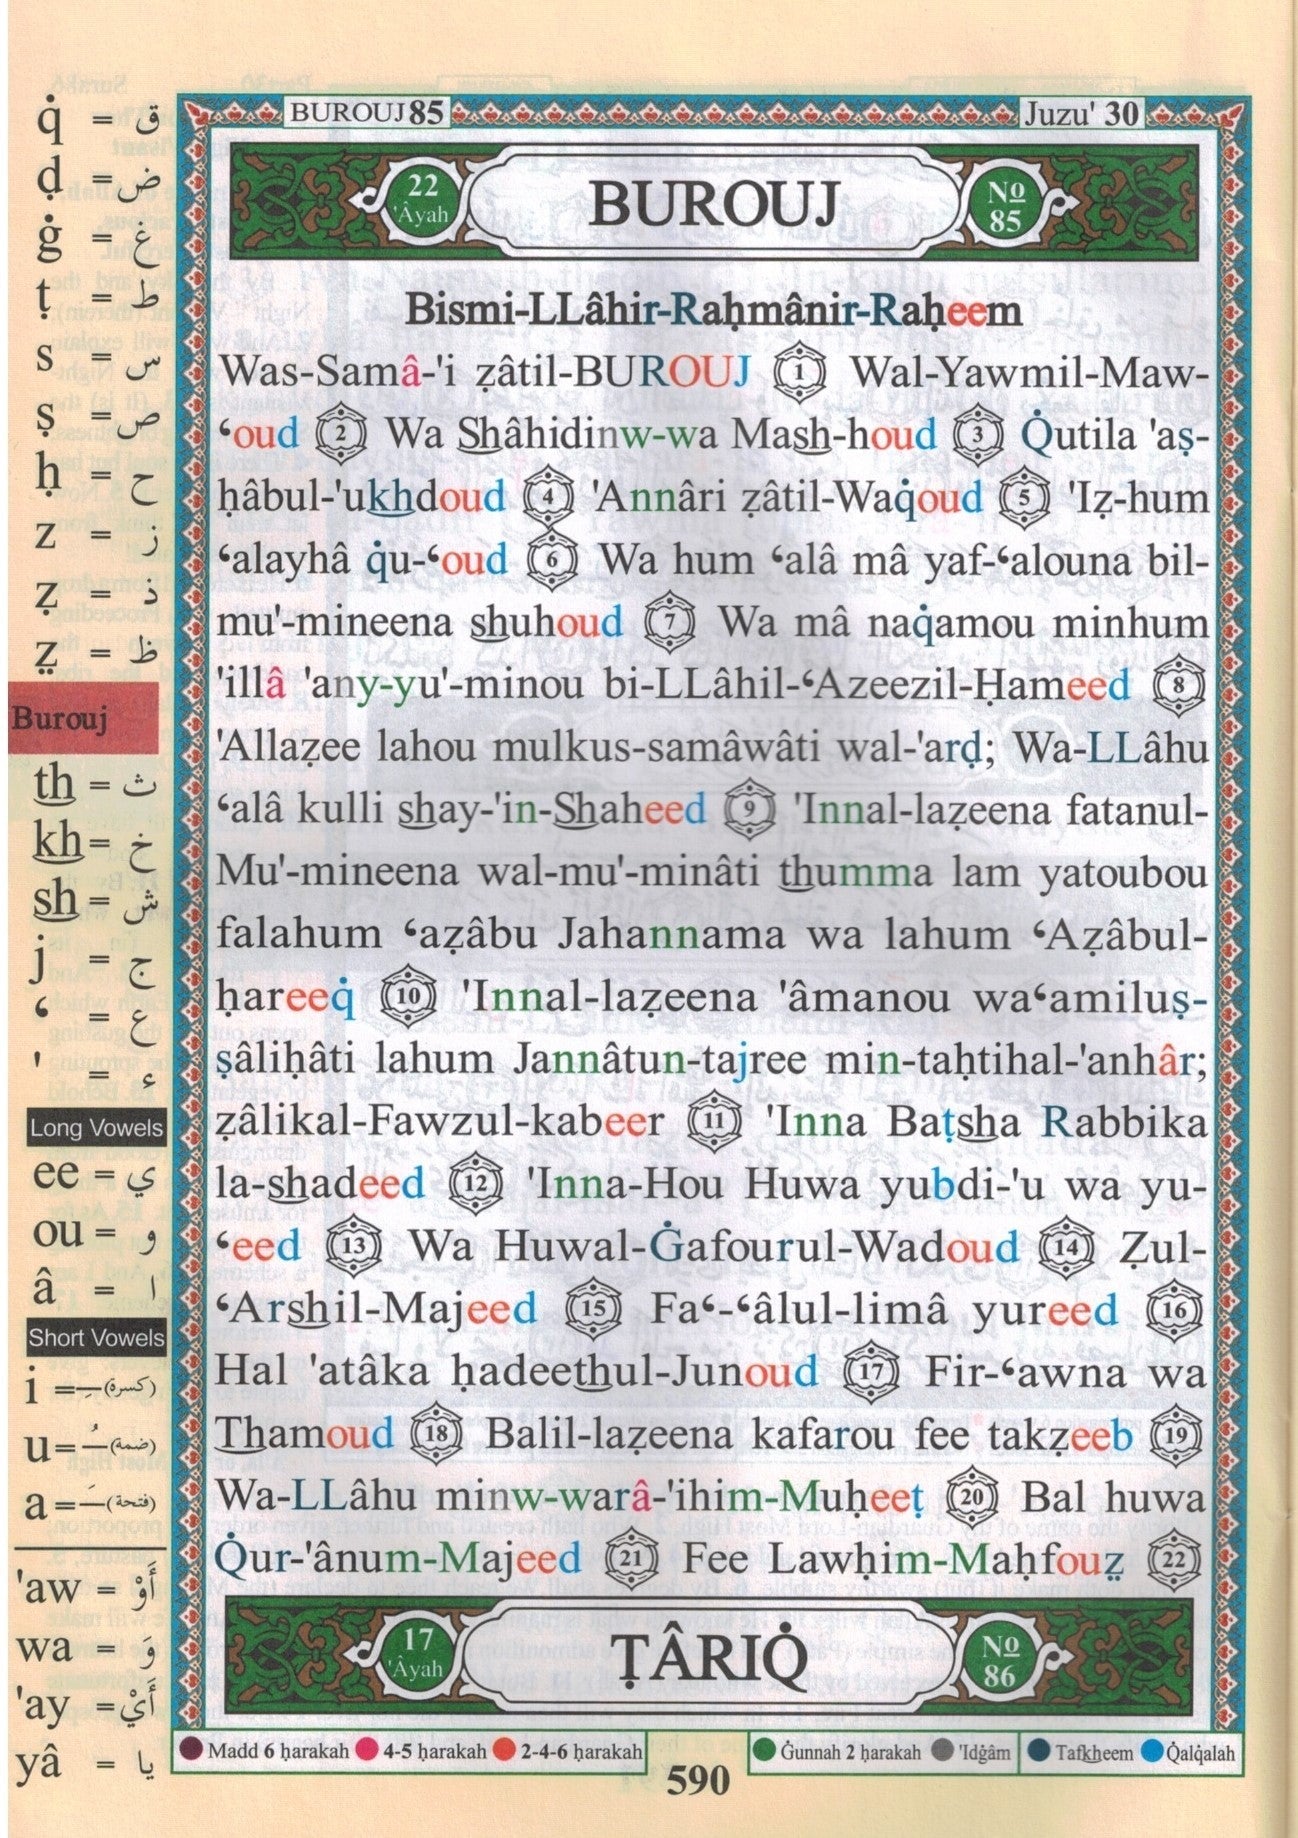 BUROUJ 85
Juzu' 30
22 'Âyah
BUROUJ
No 85
Bismi-LLâhir-Raḥmânir-Raḥeem
Was-Samâ-'i ẓâtil-BUROUJ 1 Wal-Yawmil-Maw-
‘oud 2 Wa Shâhidinw-wa Mash-houd 3 Q̇utila 'aṣ-
ḥâbul-'ukhdoud 4 'Annâri ẓâtil-Waq̇oud 5 'Iẓ-hum
‘alayhâ q̇u-‘oud 6 Wa hum ‘alâ mâ yaf-‘alouna bil-
mu'-mineena shuhoud 7 Wa mâ naq̇amou minhum
'illâ 'any-yu'-minou bi-LLâhil-‘Azeezil-Ḥameed 8
'Allaẓee lahou mulkus-samâwâti wal-'arḍ; Wa-LLâhu
‘alâ kulli shay-'in-Shaheed 9 'Innal-laẓeena fatanul-
Mu'-mineena wal-mu'-minâti thumma lam yatoubou
falahum ‘aẓâbu Jahannama wa lahum ‘Aẓâbul-
ḥareeq̇ 10 'Innal-laẓeena 'âmanou wa‘amiluṣ-
ṣâliḥâti lahum Jannâtun-tajree min-taḥtihal-'anhâr;
ẓâlikal-Fawzul-kabeer 11 'Inna Baṭsha Rabbika
la-shadeed 12 'Inna-Hou Huwa yubdi-'u wa yu-
‘eed 13 Wa Huwal-Ġafourul-Wadoud 14 Ẓul-
‘Arshil-Majeed 15 Fa‘-‘âlul-limâ yureed 16
Hal 'atâka ḥadeethul-Junoud 17 Fir-‘awna wa
Thamoud 18 Balil-laẓeena kafarou fee takẓeeb 19
Wa-LLâhu minw-warâ-'ihim-Muḥeeṭ 20 Bal huwa
Q̇ur-'ânum-Majeed 21 Fee Lawḥim-Maḥfouẓ̤ 22
17 'Âyah
ṬÂRIQ̇
No 86
Madd 6 ḥarakah 4-5 ḥarakah 2-4-6 ḥarakah
Ġunnah 2 ḥarakah 'Idġâm Tafkheem Q̇alq̇alah
590
q̇ = ق
ḍ = ض
ġ = غ
ṭ = ط
s = س
ṣ = ص
ḥ = ح
z = ز
ẓ = ذ
ẓ̤ = ظ
Burouj
th = ث
kh = خ
sh = ش
j = ج
‘ = ع
' = ء
Long Vowels
ee = ي
ou = و
â = ا
Short Vowels
i = ـِ (كسرة)
u = ـُ (ضمة)
a = ـَ (فتحة)
'aw = أَوْ
wa = وَ
'ay = أَيْ
yâ = يا